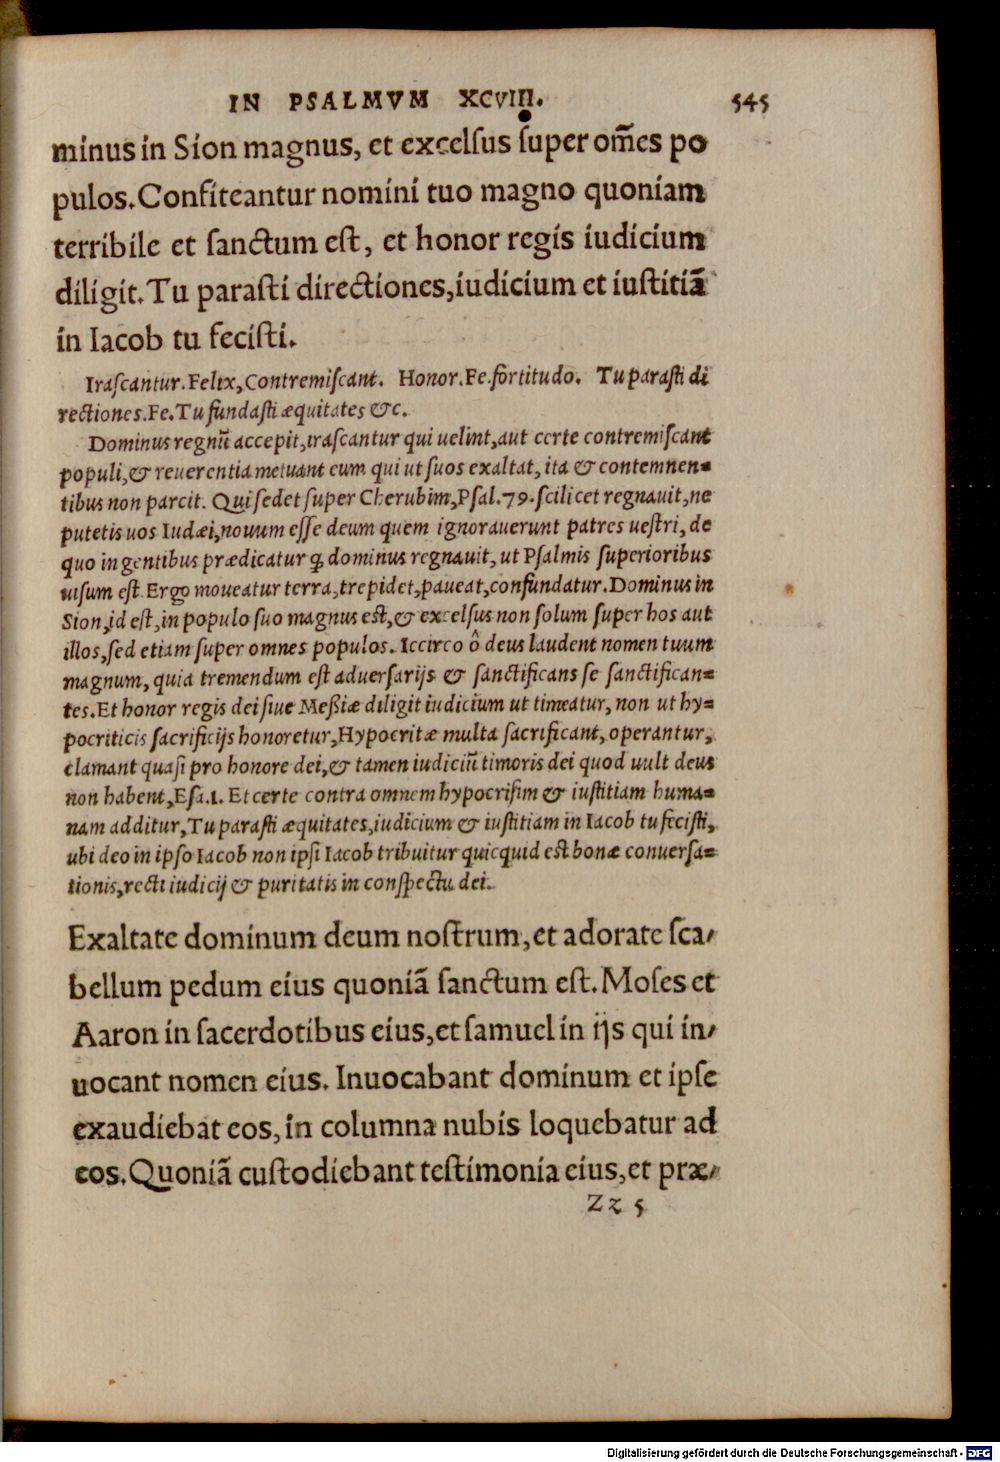 IN PSALMVM XCVIII. 545
minus in Sion magnus, et excelſus ſuper om̄es po
pulos. Confiteantur nomini tuo magno quoniam
terribile et ſanctum eſt, et honor regis iudicium
diligit. Tu paraſti directiones, iudicium et iuſtitiā
in Iacob tu feciſti.
Iraſcantur. Felix, Contremiſcant. Honor. Fe. fortitudo. Tu paraſti di
rectiones. Fe. Tu fundaſti æquitates &c.
Dominus regnū accepit, iraſcantur qui uelint, aut certe contremiſcant
populi, & reuerentia metuant eum qui ut ſuos exaltat, ita & contemnen=
tibus non parcit. Qui ſedet ſuper Cherubim, Pſal. 79. ſcilicet regnauit, ne
putetis uos Iudæi, nouum eſſe deum quem ignorauerunt patres ueſtri, de
quo in gentibus prædicatur ꝙ dominus regnauit, ut Pſalmis ſuperioribus
uiſum eſt. Ergo moueatur terra, trepidet, paueat, confundatur. Dominus in
Sion, id eſt, in populo ſuo magnus eſt, & excelſus non ſolum ſuper hos aut
illos, ſed etiam ſuper omnes populos. Iccirco ô deus laudent nomen tuum
magnum, quia tremendum eſt aduerſarijs & ſanctificans ſe ſanctifican=
tes. Et honor regis dei ſiue Meßiæ diligit iudicium ut timeatur, non ut hy=
pocriticis ſacrificijs honoretur, Hypocritæ multa ſacrificant, operantur,
clamant quaſi pro honore dei, & tamen iudiciū timoris dei quod uult deus
non habent, Eſa. 1. Et certe contra omnem hypocriſim & iuſtitiam huma=
nam additur, Tu paraſti æquitates, iudicium & iuſtitiam in Iacob tu feciſti,
ubi deo in ipſo Iacob non ipſi Iacob tribuitur quicquid eſt bonæ conuerſa=
tionis, recti iudicij & puritatis in conſpectu dei.
Exaltate dominum deum noſtrum, et adorate ſca/
bellum pedum eius quoniā ſanctum eſt. Moſes et
Aaron in ſacerdotibus eius, et ſamuel in ijs qui in/
uocant nomen eius. Inuocabant dominum et ipſe
exaudiebat eos, in columna nubis loquebatur ad
eos. Quoniā cuſtodiebant teſtimonia eius, et præ/
Zz 5
Digitalisierung gefördert durch die Deutsche Forschungsgemeinschaft - DFG